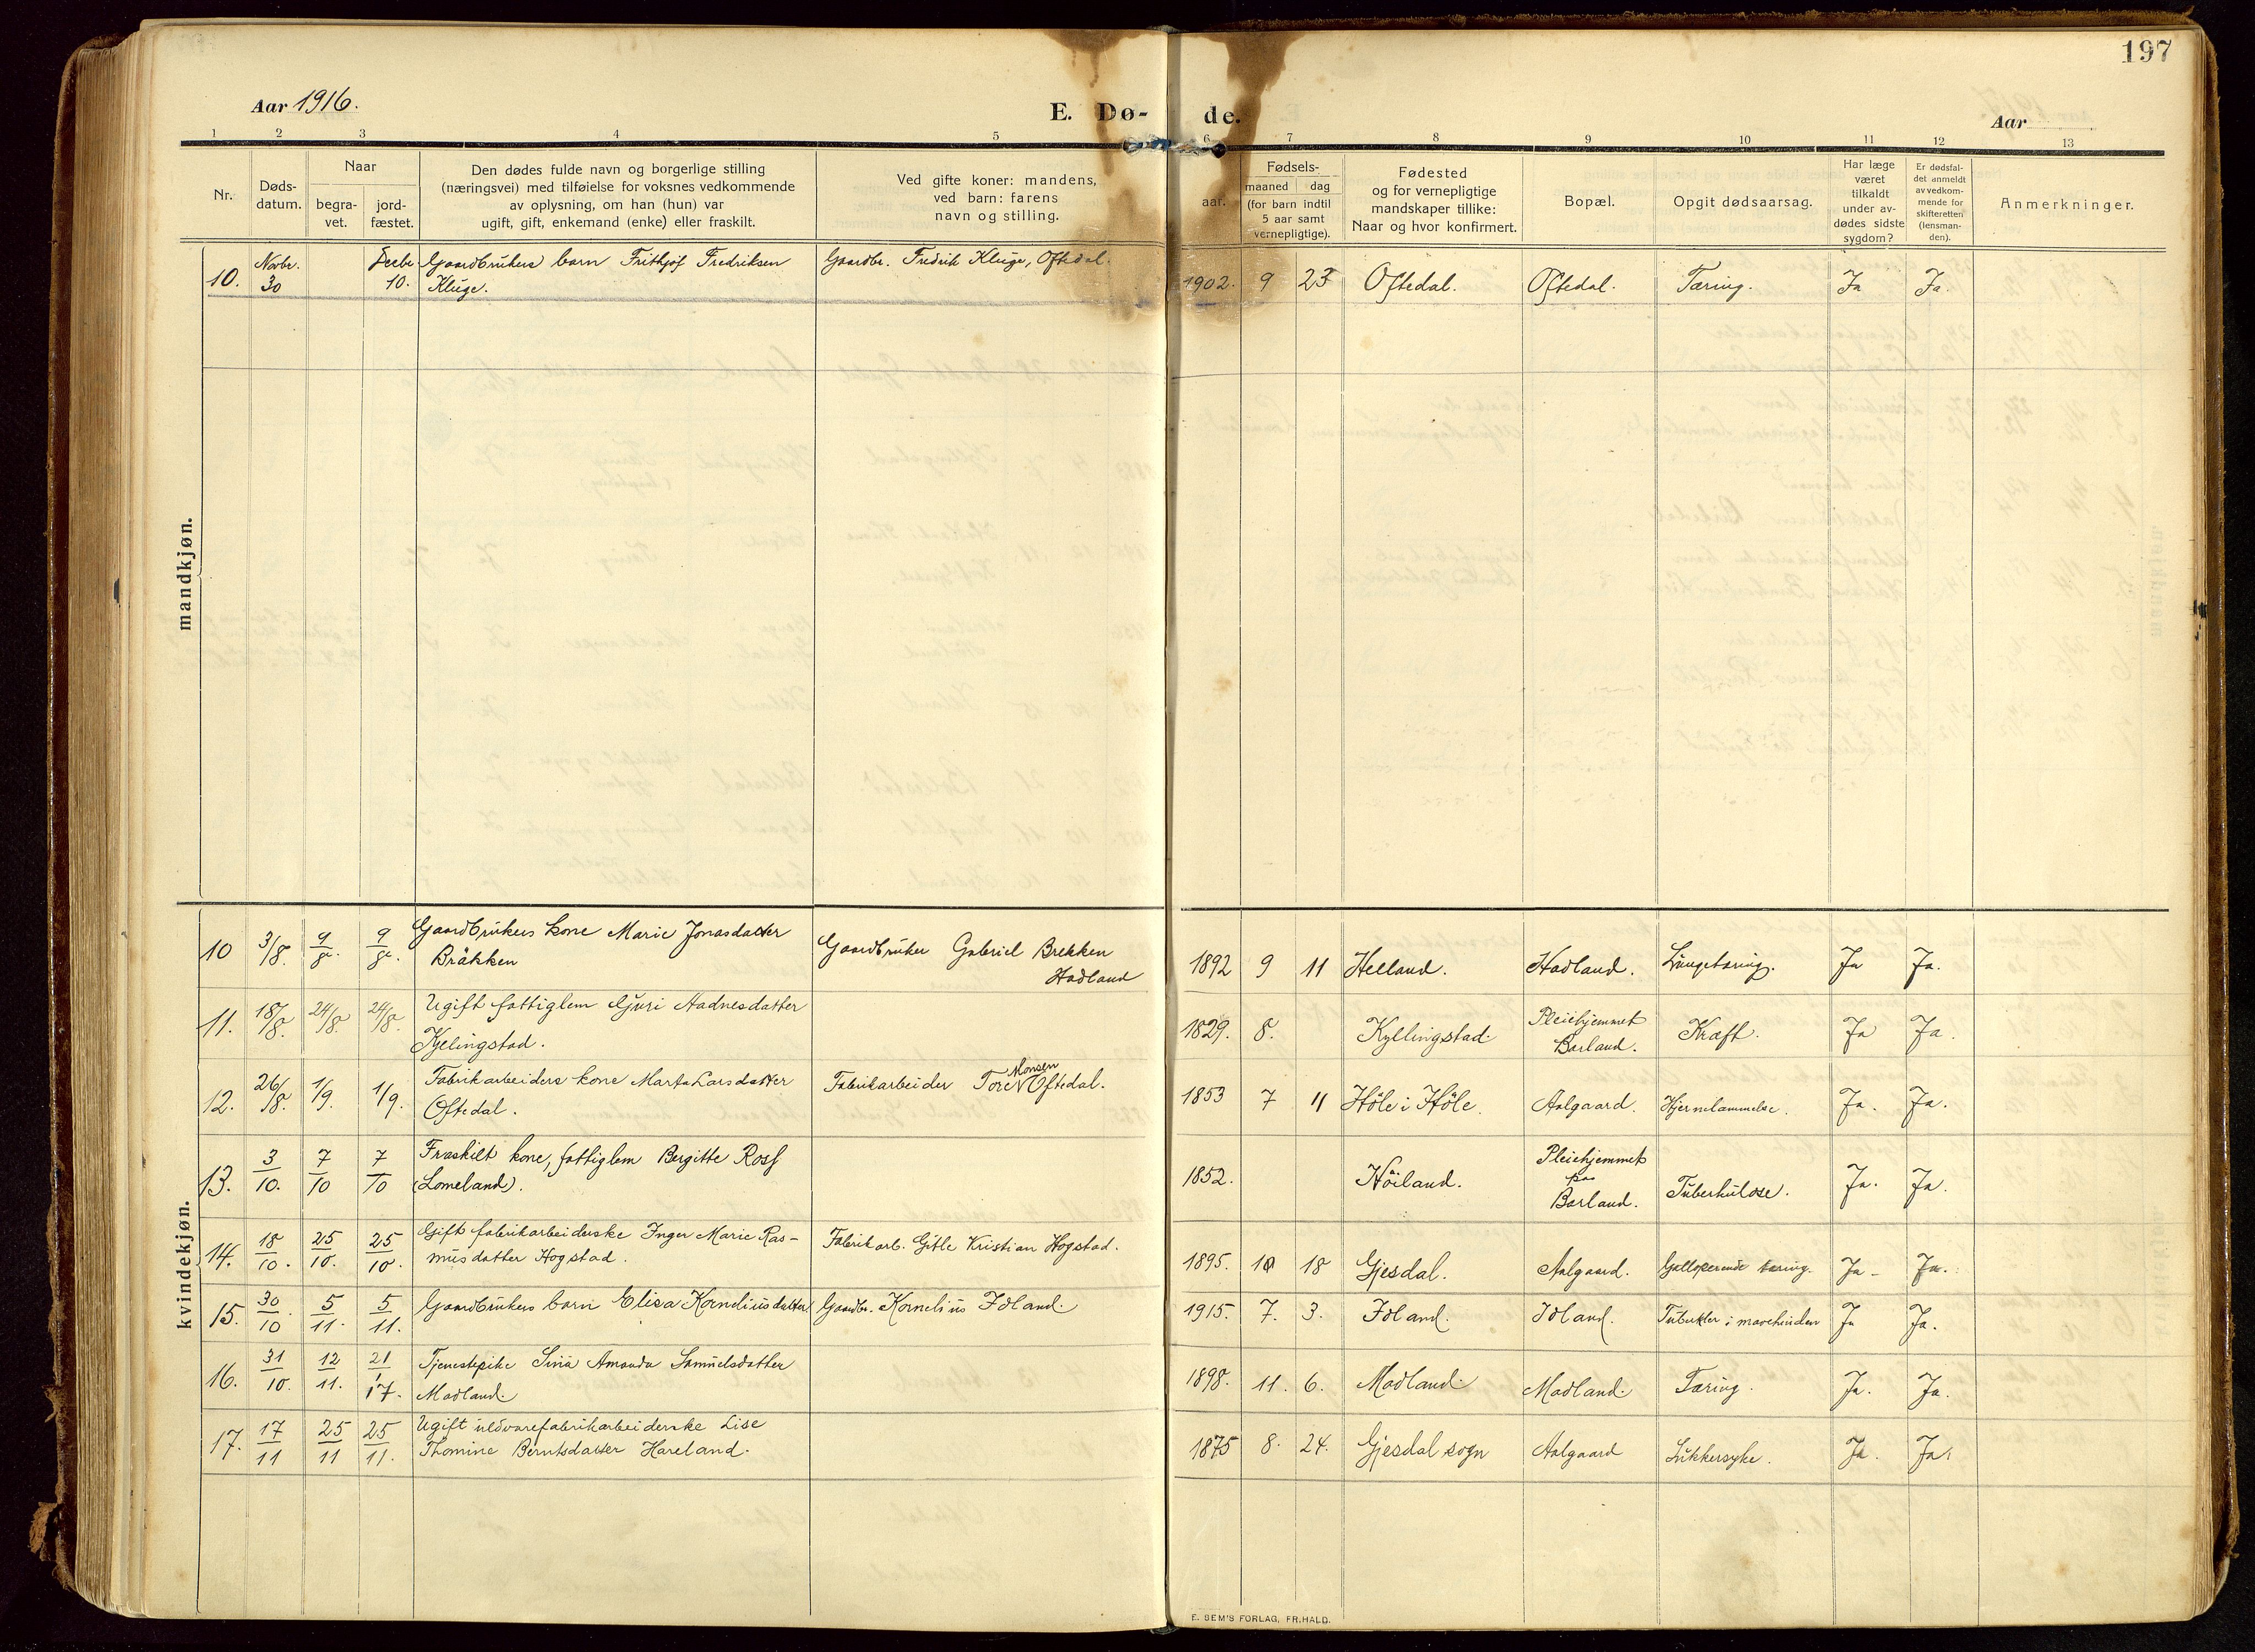 197
Aar 1916.
E. Dø-
de.
Aar
1 2 3 4 5 6 7 8 9 10 11 12 13
Nr.
Døds-
datum.
Naar
begra-
vet.
jord-
fæstet.
Den dødes fulde navn og borgerlige stilling
(næringsvei) med tilføielse for voksnes vedkommende
av oplysning, om han (hun) var
ugift, gift, enkemand (enke) eller fraskilt.
Ved gifte koner: mandens,
ved barn: farens
navn og stilling.
aar.
Fødsels-
maaned dag
(for barn indtil
5 aar samt
vernepligtige).
Fødested
og for vernepligtige
mandskaper tillike:
Naar og hvor konfirmert.
Bopæl.
Opgit dødsaarsag.
Har læge
været
tilkaldt
under av-
dødes sidste
sygdom?
Er dødsfal-
det anmeldt
av vedkom-
mende for
skifteretten
(lensman-
den).
Anmerkninger.
mandkjøn.
Novbr. Decbr. Gaardbrukers barn Frithjof Fredriksen Gaardbr. Fredrik Kluge, Oftedal.
10. 30 10. Kluge. 1902. 9 23 Oftedal. Oftedal. Tæring. Ja Ja.
kvindekjøn.
10 3/8. 9/8. 9/8. Gaardbrukers kone Marie Jonasdatter
Bräkken
Gaardbruker Gabriel Brekken
Hadland
1892 9 11 Helland. Hadland. Lungetæring. Ja Ja.
11. 18/8. 24/8. 24/8. Ugift fattiglem Guri Aadnesdatter
Kjelingstad.
1829. 8. Kyllingstad. Pleiehjemmet
Borland. Kræft. Ja Ja.
12. 26/8. 1/9. 1/9. Fabrikarbeiders kone Marta Larsdatter
Oftedal.
Fabrikarbeider Tore Monsen Oftedal.
1853 7 11 Höle i Höle. Aalgaard. Hjernelammelse. Ja. Ja.
13. 3/10. 7/10 7/10 Fraskilt kone, fattiglem Bergitte Ross
(Lomeland).
1852. Höiland. Pleiehjemmet
paa
Borland. Tuberkulose. Ja. Ja.
14. 18/10. 25/10. 25/10. Gift fabrikarbeiderske Inger Marie Ras-
musdatter Hogstad.
Fabrikarb. Gitle Kristian Hogstad.
1895. 10 18 Gjesdal. Aalgaard. Galloperende tæring. Ja Ja.
15. 30/10. 5/11. 5/11. Gaardbrukers barn Elisa Kornelius datter Gaardbr. Kornelius Idland.
1915. 7. 3. Idland. Idland. Tuberkler i mavehinden Ja Ja.
16. 31/10. 12/11. 21/1 17. Tjenestepike Sina Amanda Samuelsdatter
Madland.
1898. 11. 6. Madland. Madland. Tæring. Ja. Ja.
17. 17/11 25/11 25/11. Ugift uldvarefabrikarbeiderske Lise
Thomine Berntsdatter Hareland.
1875 8. 24. Gjesdal sogn Aalgaard Sukkersyke. Ja. Ja.
E. SEM'S FORLAG, FR.HALD.